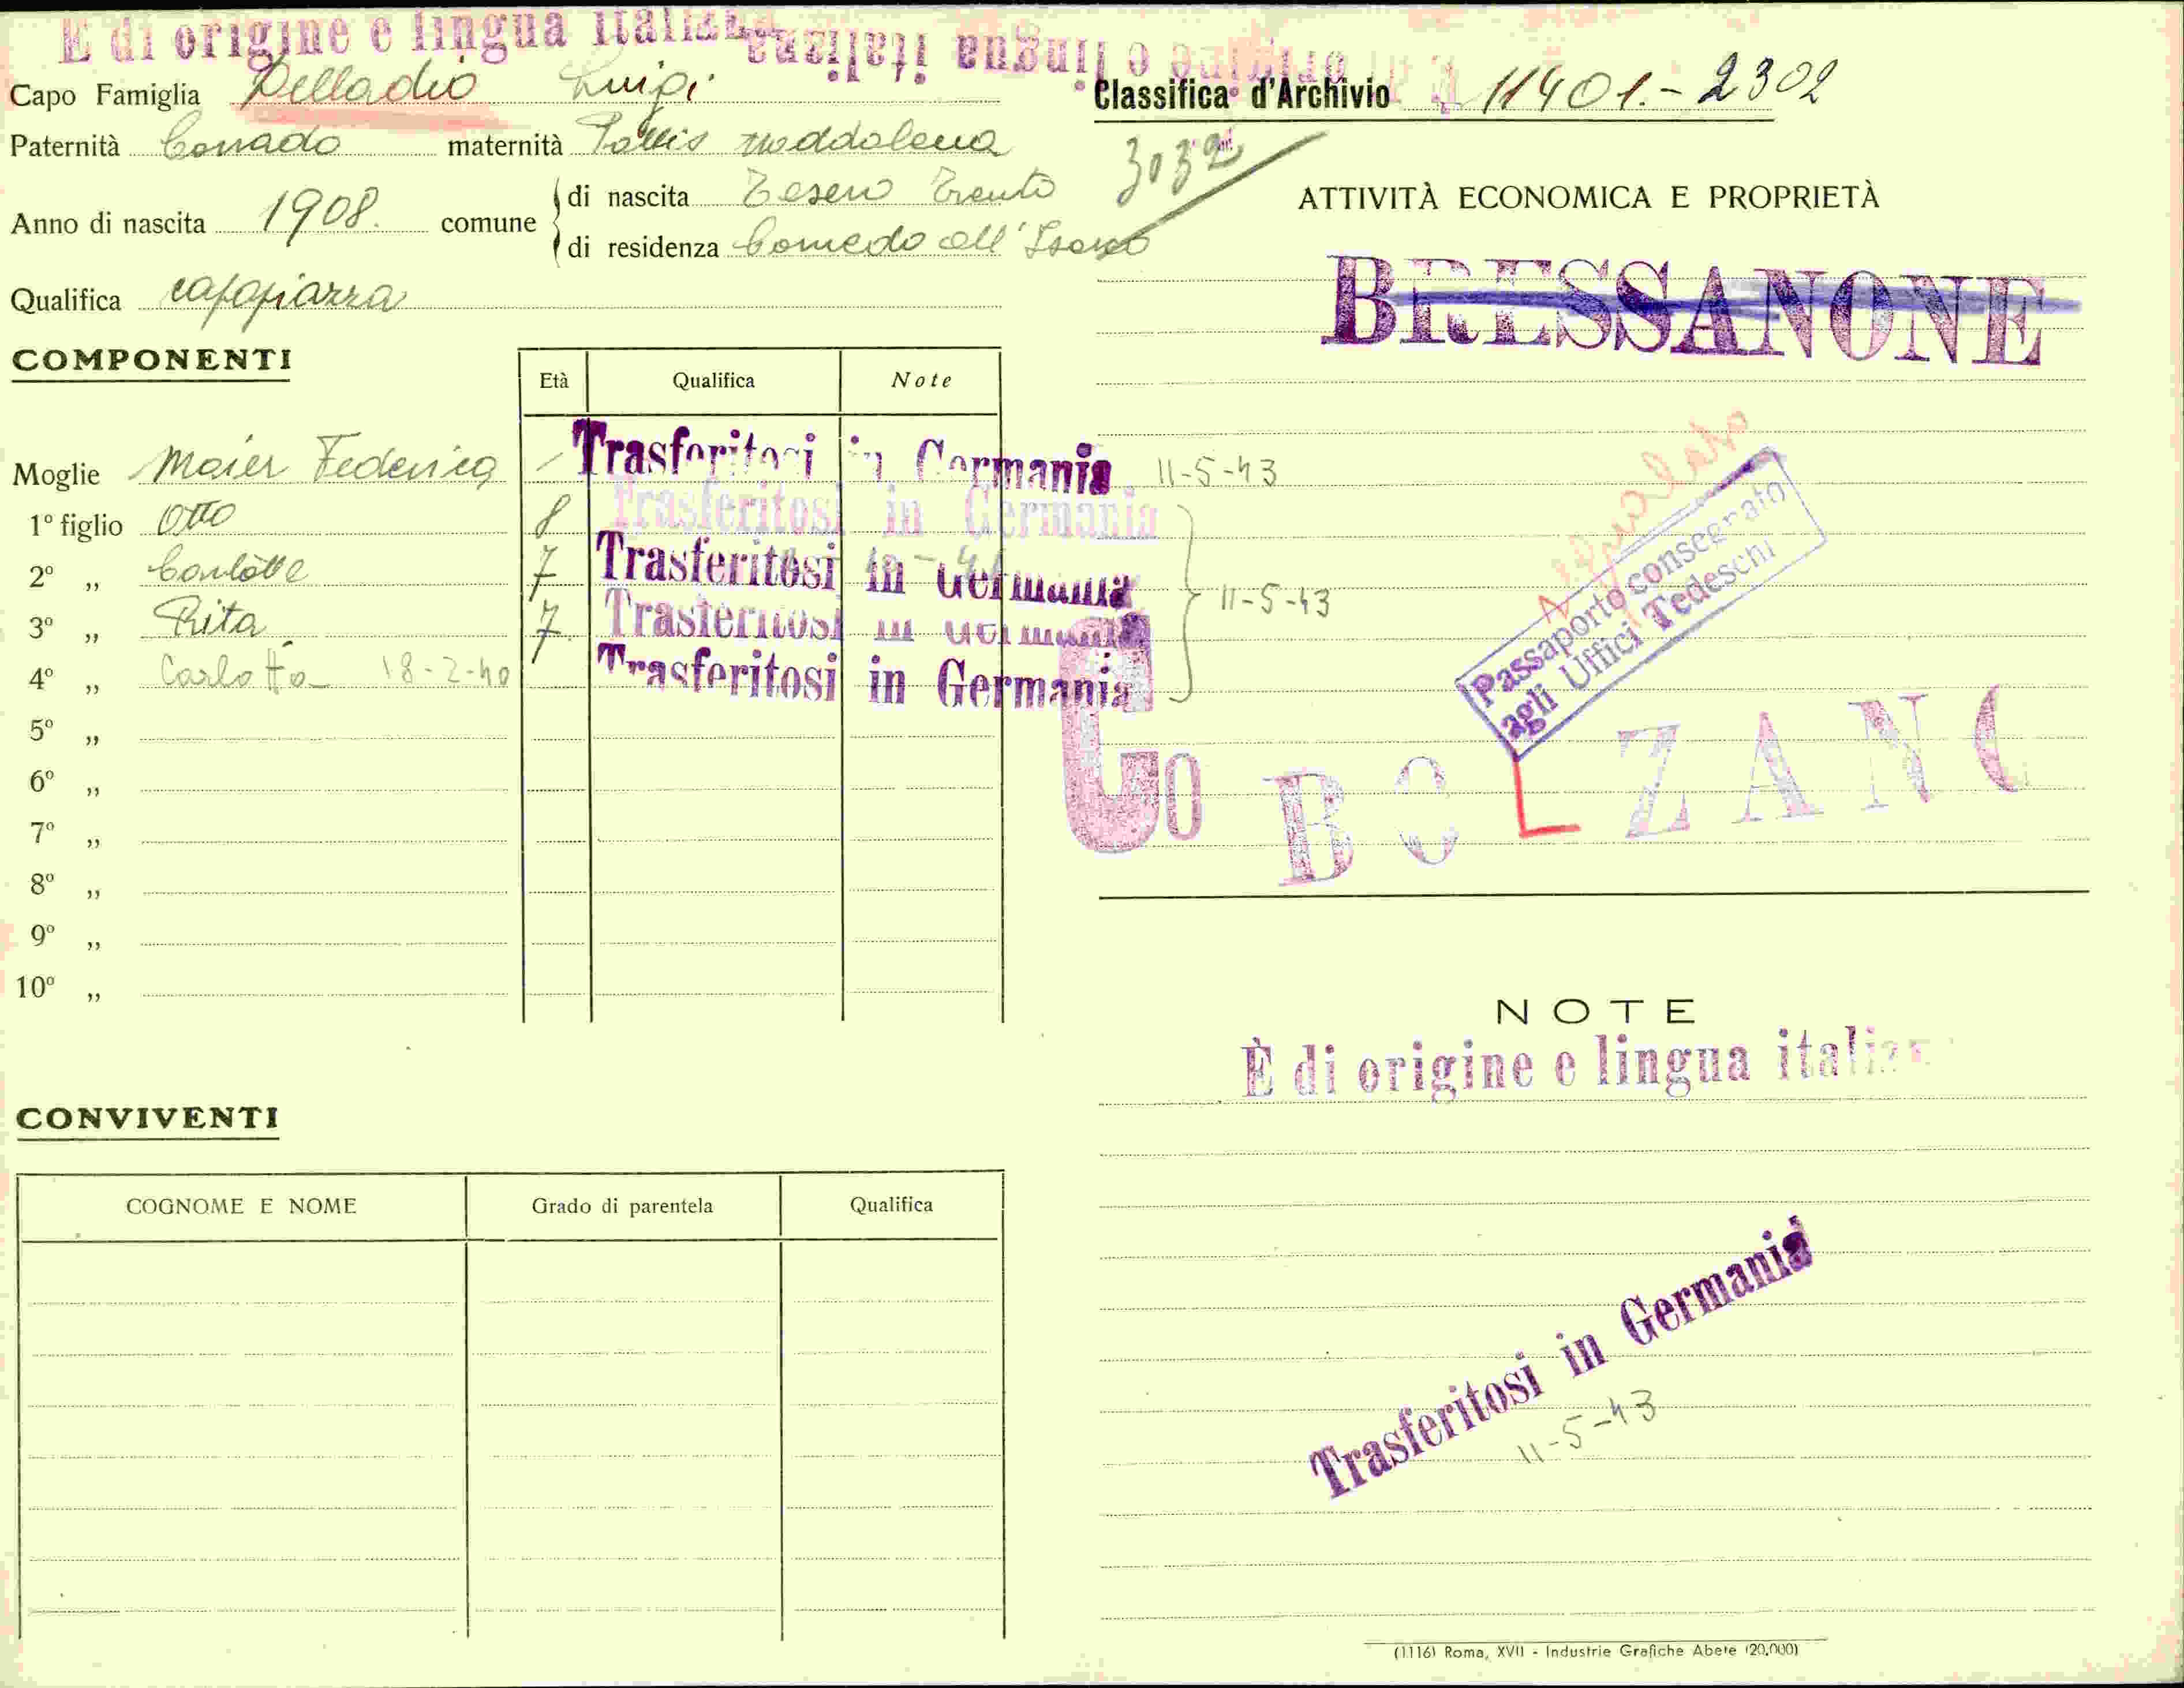 È di origine e lingua italiana
È di origine e lingua italiana
Capo Famiglia Delladio Luigi
Paternità Corrado maternità Maddalena
Anno di nascita 1908. comune di nascita Tesero Trento
di residenza Cornedo all'Isarco
Qualifica capopiazza
COMPONENTI
Età Qualifica Note
Moglie Maier Federica Trasferitosi in Germania 11-5-43
1º figlio Otto 8 Trasferitosi in Germania
2º „ 7 Trasferitosi in Germania
11-5-43
3º „ Rita 7 Trasferitosi in Germania
4º „ Carlotta 18-2-40 Trasferitosi in Germania
5º „
6º „
7º „
8º „
9º „
10º „
CONVIVENTI
COGNOME E NOME Grado di parentela Qualifica
Classifica d'Archivio 11401.-2302
3032
ATTIVITÀ ECONOMICA E PROPRIETÀ
BRESSANONE
Passaporto consegnato
agli Uffici Tedeschi
BOLZANO
NOTE
È di origine e lingua italiana
Trasferitosi in Germania
11-5-43
(1116) Roma, XVII - Industrie Grafiche Abete (20.000)